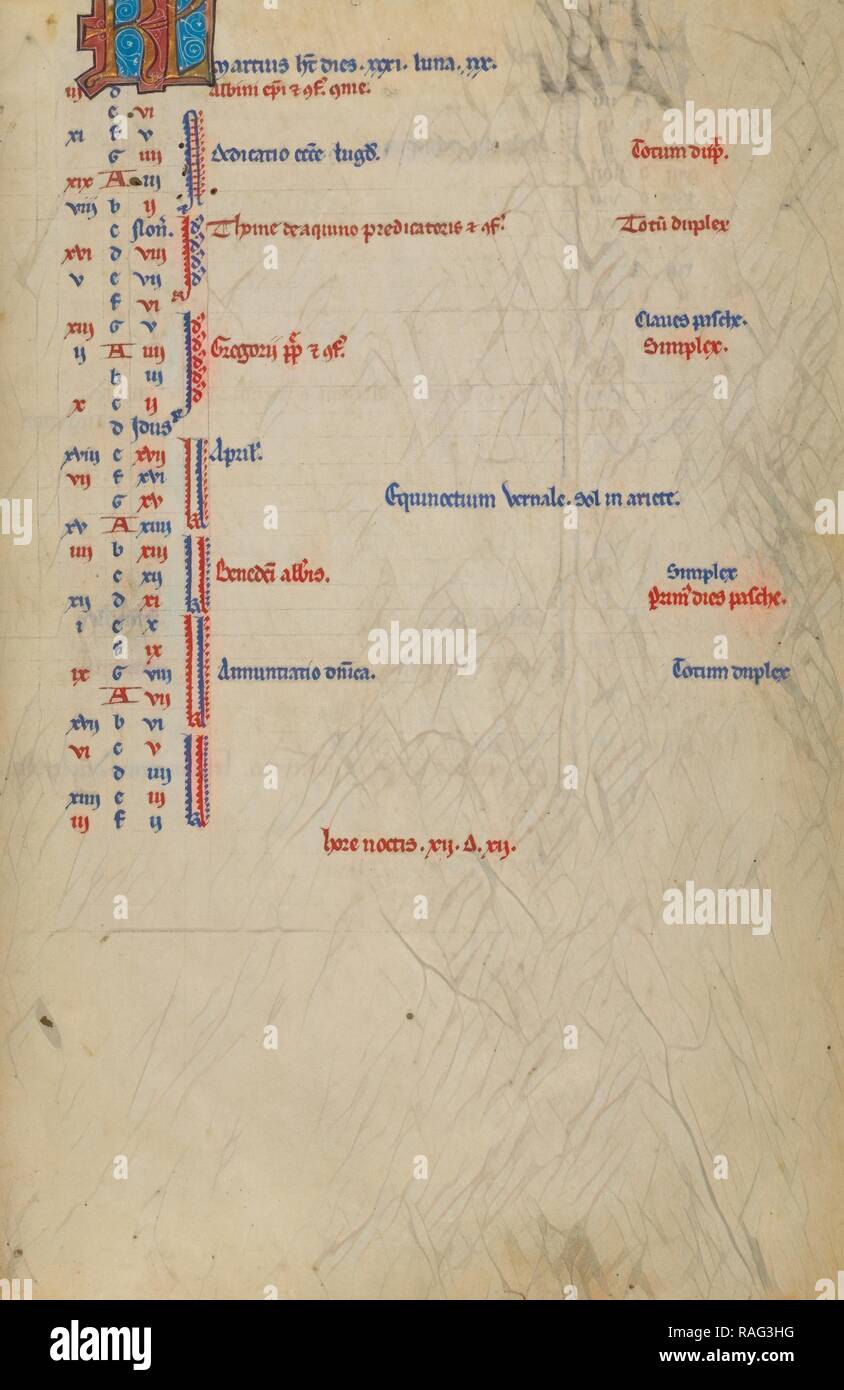 KL martius ht dies. xxxi. luna. xx.
iij d Albini epi et 9f. 9me.
e vi
xi f v
G iiij Dedicatio eccle lugd. Totum dup.
xix A iij
viij b ij
c Non. Thome de aquino predicatoris et 9f. Totu duplex
xvi d viij
v e vij
f vi
xiij G v Claues pasche.
ij A iiij Gregorij pp et 9f. Simplex.
b iij
x c ij
d Idus
xviij e xvij April.
vij f xvi
G xv Equinoctium vernale. Sol in ariete.
xv A xiiij
iiij b xiij
c xij Benedcti abbis. Simplex
xij d xi Prim dies pasche.
i e x
f ix
ix G viij Annuntiatio dnica. Totum duplex
A vij
xvij b vi
vi c v
d iiij
xiiij e iij
iij f ij
hore noctis. xij. d. xij.
alamy
Image ID: RAG3HG
www.alamy.com